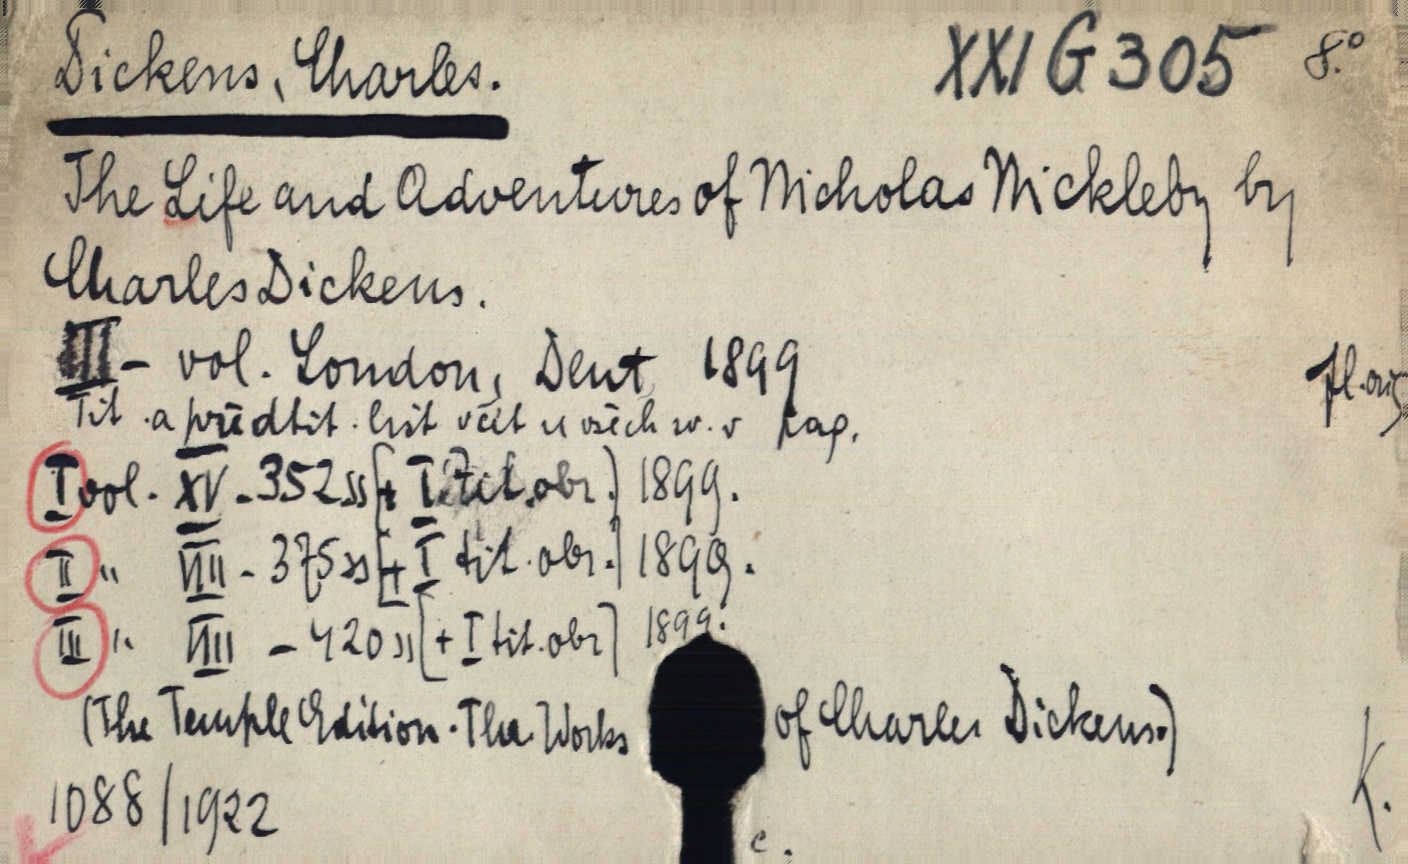 Dickens, Charles. XXI G 305 8.°
The Life and Adventures of Nicholas Nickleby by
Charles Dickens.
III - vol. London, Dent 1899
pl. orig
Tit. a předtit. list včít u všech sv. v pag.
I vol. XV - 352 ss [+ I tit. obr.] 1899.
II " VIII - 375 ss [+ I tit. obr.] 1899.
III " VIII - 420 ss [+ I tit. obr] 1899.
(The Temple Edition. The Works of Charles Dickens.)
K.
1088/1922
c.